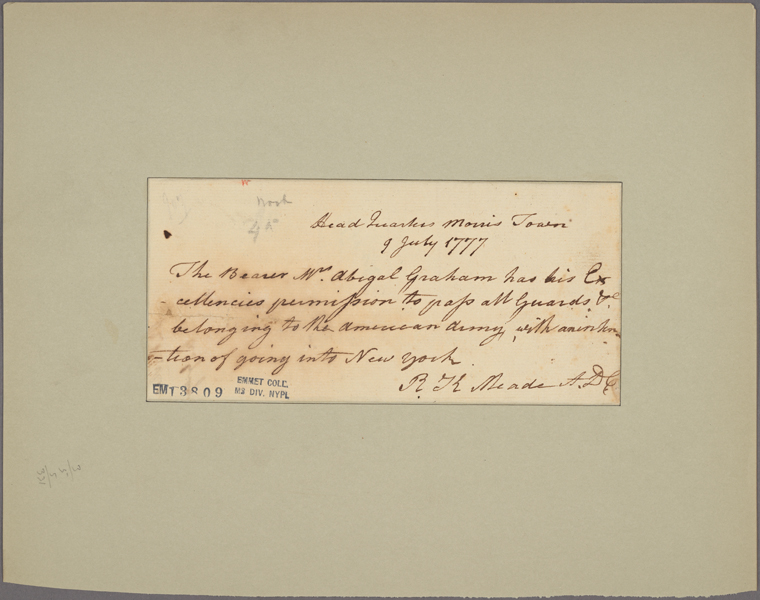 Head Quarters Morris Town
9 July 1777
The Bearer Mrs. Abigal Graham has his Ex
-cellencies permission to pass all Guards &c
belonging to the american army, with an inten
-tion of going into New York
R. K Meade A.D.C
EM13809
EMMET COLL.
MS DIV. NYPL